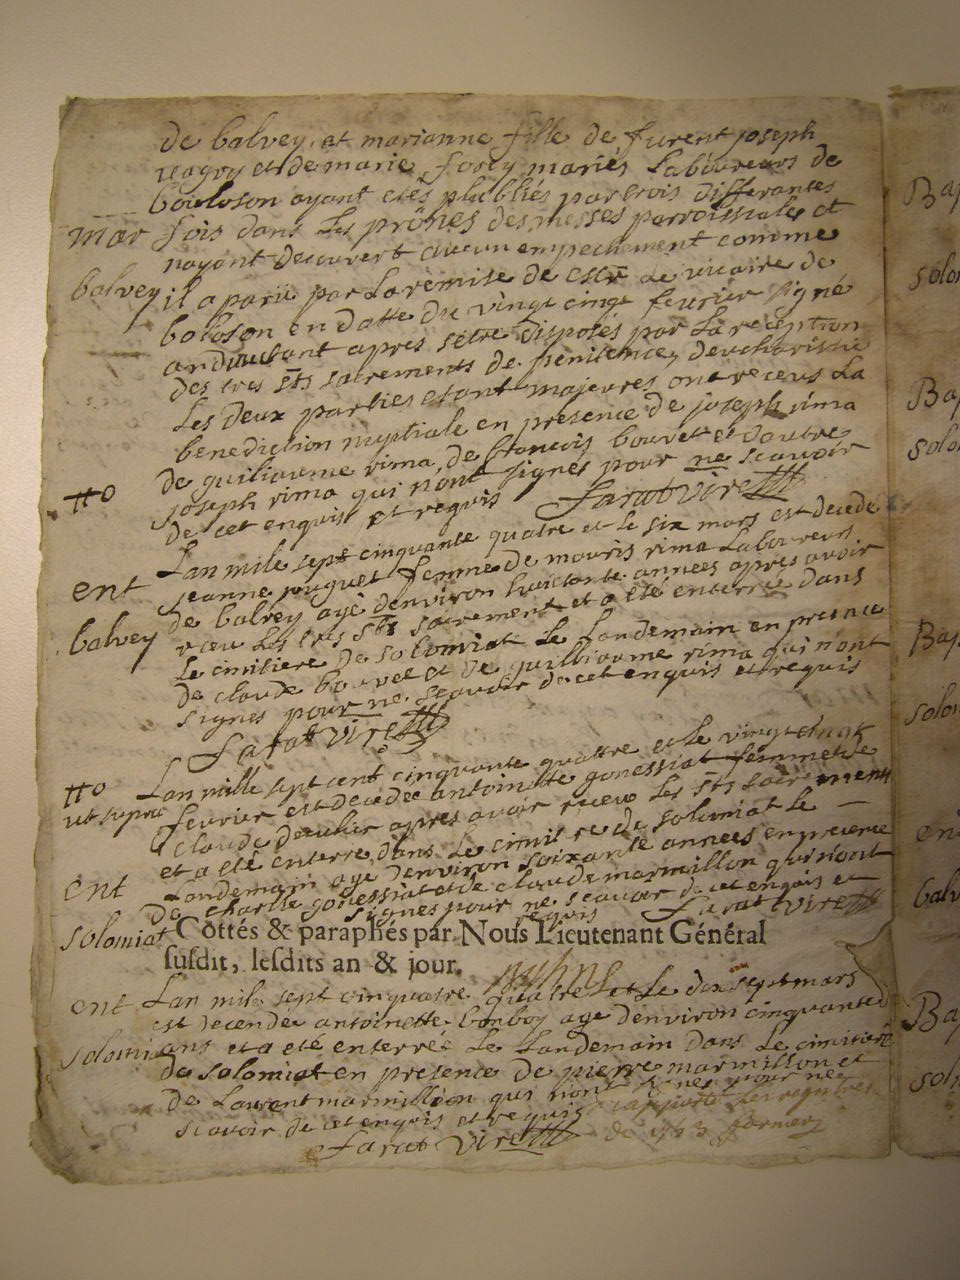 de balvey, et marianne fille de furent joseph
et de marie forey mariés Laboureurs de
bouloson ayant etés plubliés par trois differantes
mar fois dans Les prônes des messes parroissiales et
nayant decouvert aucun empechement comme
balvey il a parû par La remise de de vicaire de
boloson en datte du vingt cinqe fevrier signé
apres setre disposés par La reception
des tres sts sacrements de penitence, deucharistie
Les deux parties etant majeures ont receus La
benediction nuptiale en presence de joseph rima
de guiliaume rima, de francois bouvet et dautre
joseph rima qui nont signés pour ne scavoir
de cet enquis et requis farat vire
tto
Lan mile sept cinquante quatre et le six mars est decede
ent jeanne puguet femme de mouris rima Laboureurs
de balvey agé denviron huictante annees apres avoir
balvey receu Les tres sts sacrement et a eté enterré dans
Le cimitiere de solomiat Le Landemain en presence
de claude bouvet et de guilliaume rima qui n'ont
signes pour ne scavoir de cet enquis et requis
farat vire
tto Lan mille sept cent cinquante quattre et le vingt
ut supra fevrier est decedée antoinette gonessiat femme de
claude apres avoir receu Les sts sacrements
et a eté enterre dans Le de solomiat le
ent Landemain age denviron soixante annees en presence
de charlle gonessiat et de claude marmillon qui n'ont
signes pour ne scavoir de cet enquis et
requis farat vire
solomiat Cottés & paraphés par Nous Lieutenant Général
susdit, lesdits an & jour.
ent Lan mile sept cinquatre quatre et Le dix sept mars
est decendée antoinette bonboy age denviron cinquante
solomiat ans et a eté enterreé Le Landemain dans Le cimitiere
de solomiat en presence de pierre marmillon et
de Laurent marmillion qui n'ont signes pour ne
scavoir de cet enquis et requis
farat vire
Bap
solom
Bap
solo
Bap
solom
ent
balv
Bap
solo